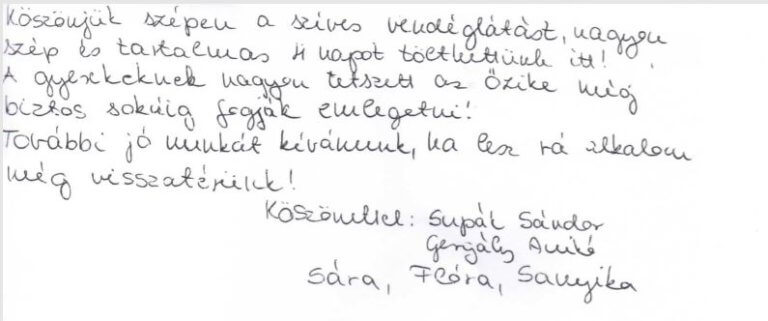 Köszönjük szépen a szíves vendéglátást, nagyon
szép és tartalmas 4 napot tölthettünk itt!
A gyerekeknek nagyon tetszett az Őzike még
biztos sokáig fogják emlegetni!
További jó munkát kívánunk, ha lesz rá alkalom
még visszatérünk!
Köszönettel: Supák Sándor
Anikó
Sára, Flóra, Sanyika